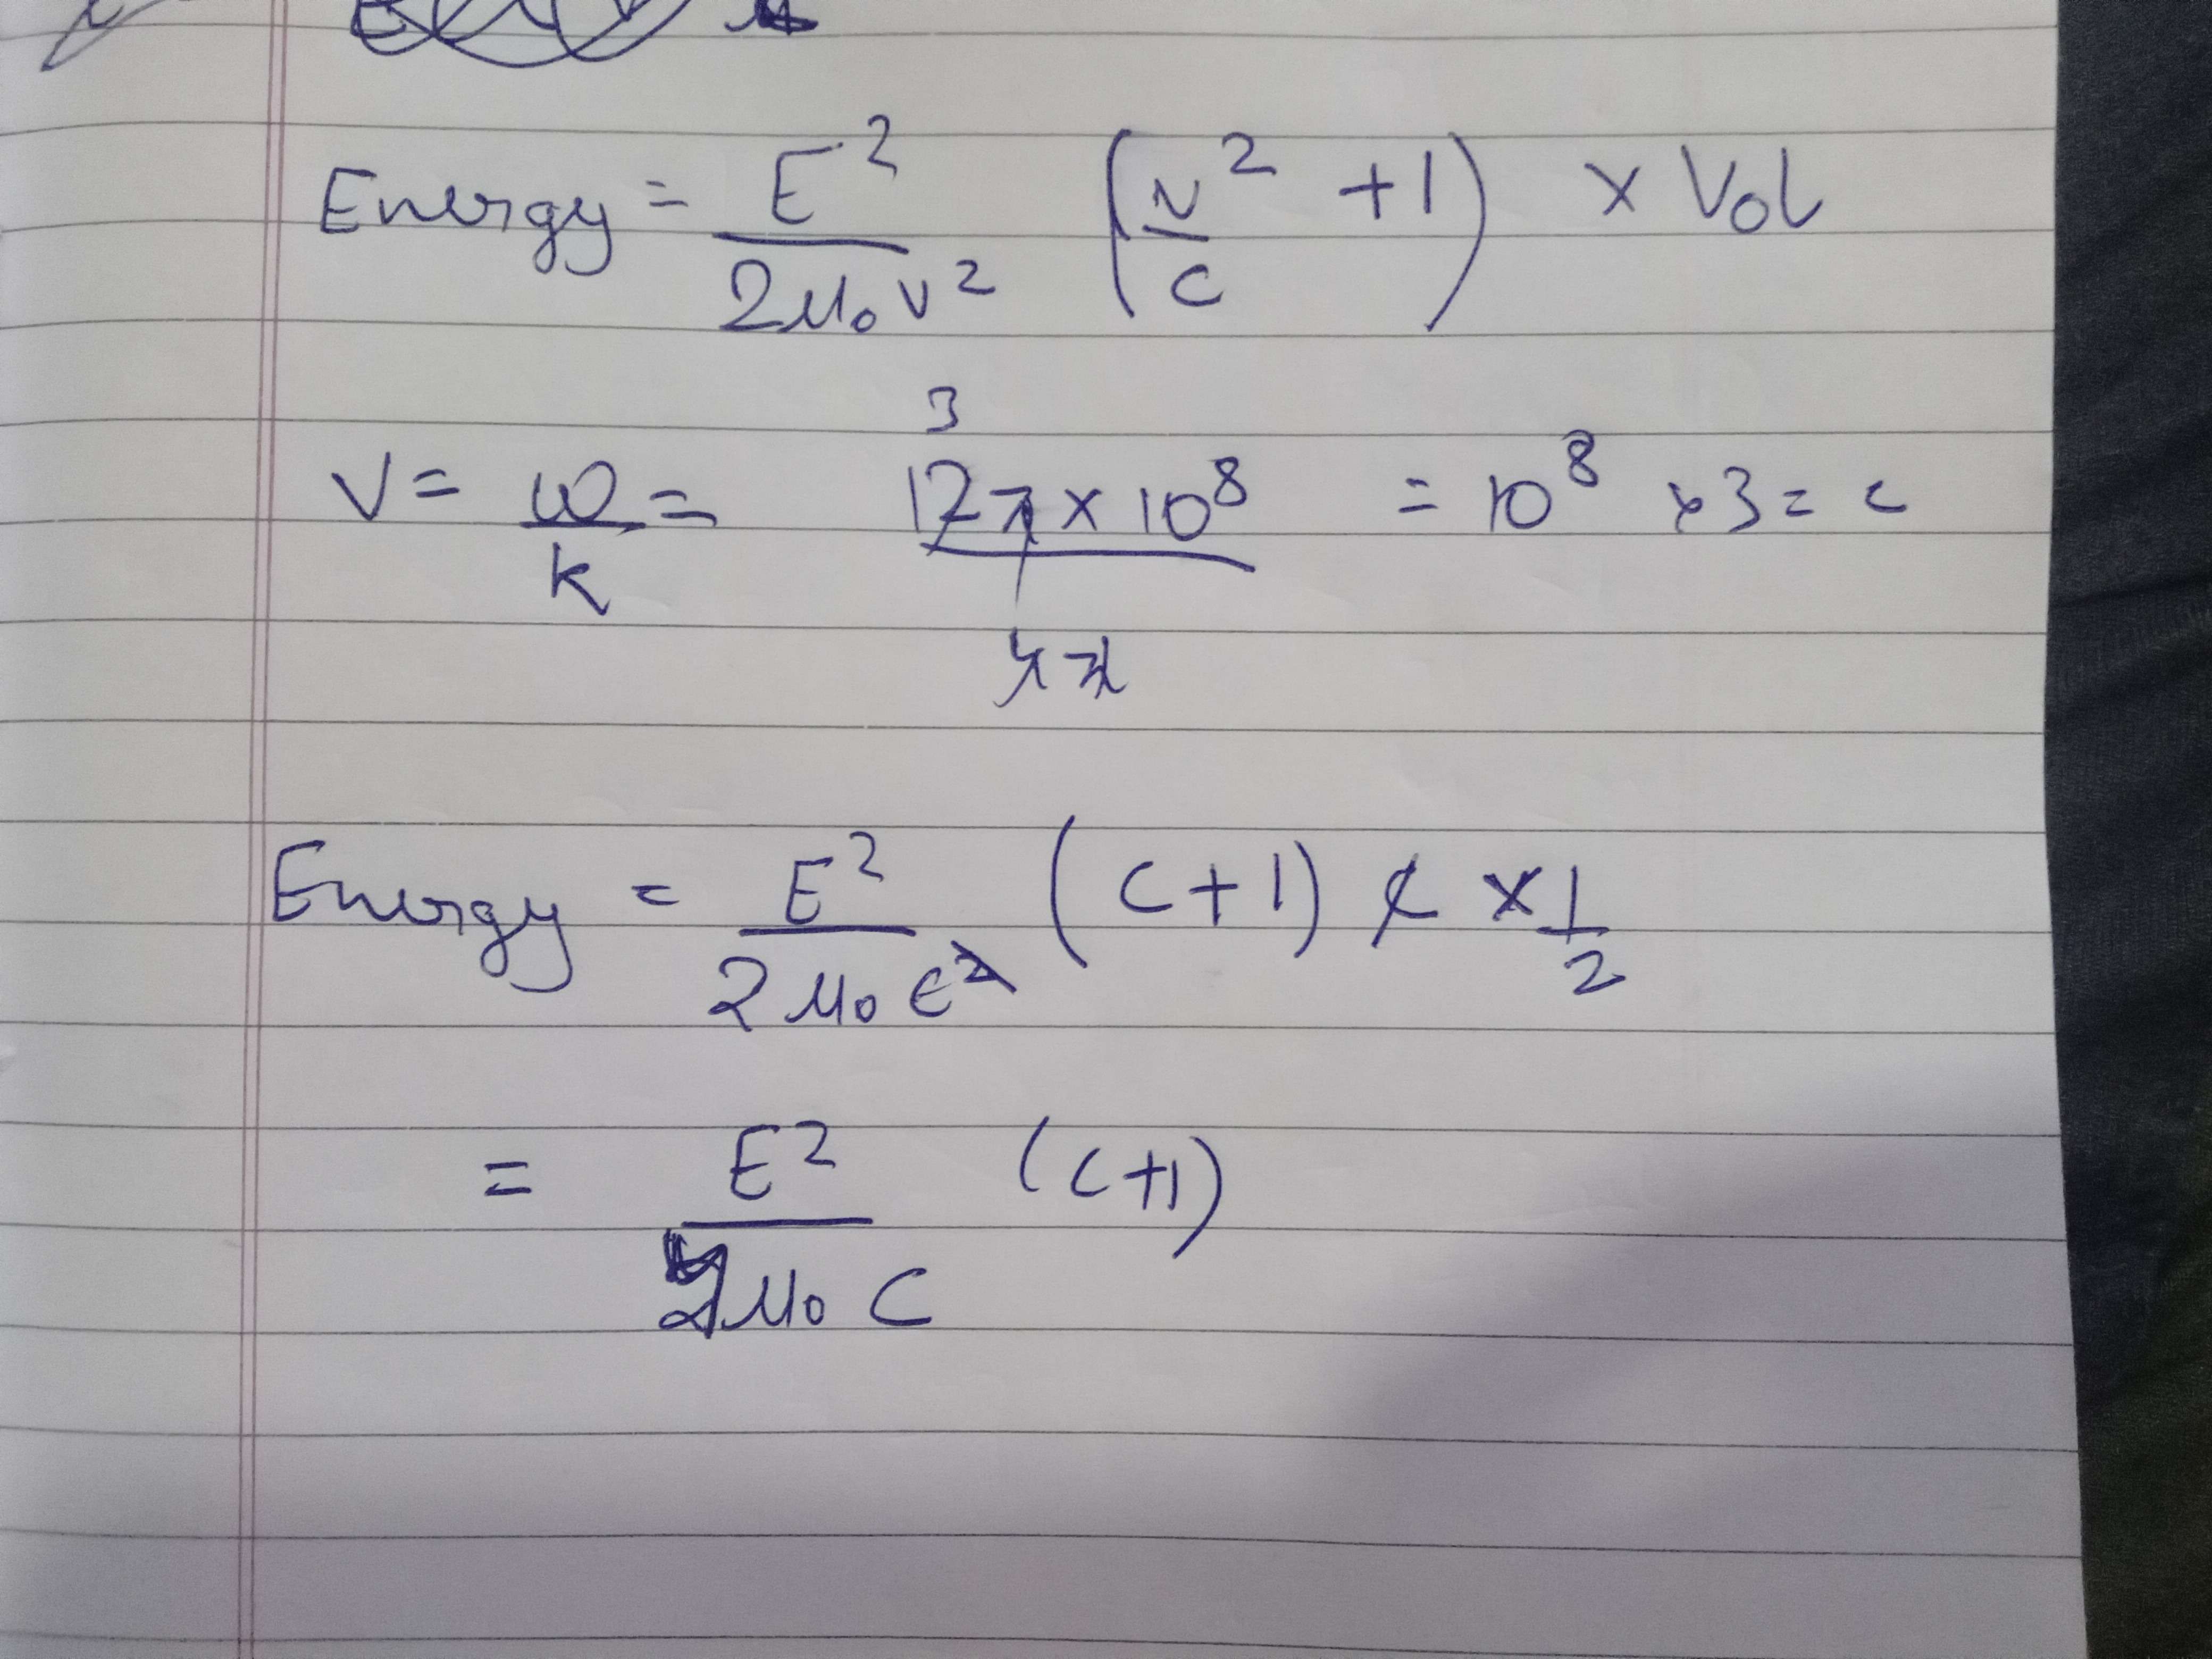 Energy = E² / 2μ₀v² (v² / c + 1) × Vol
v = ω / k = 12π × 10⁸ / 4π = 10⁸ × 3 = c
3
Energy = E² / 2μ₀c² (c + 1) c × 1 / 2
= E² / 2μ₀c (c+1)